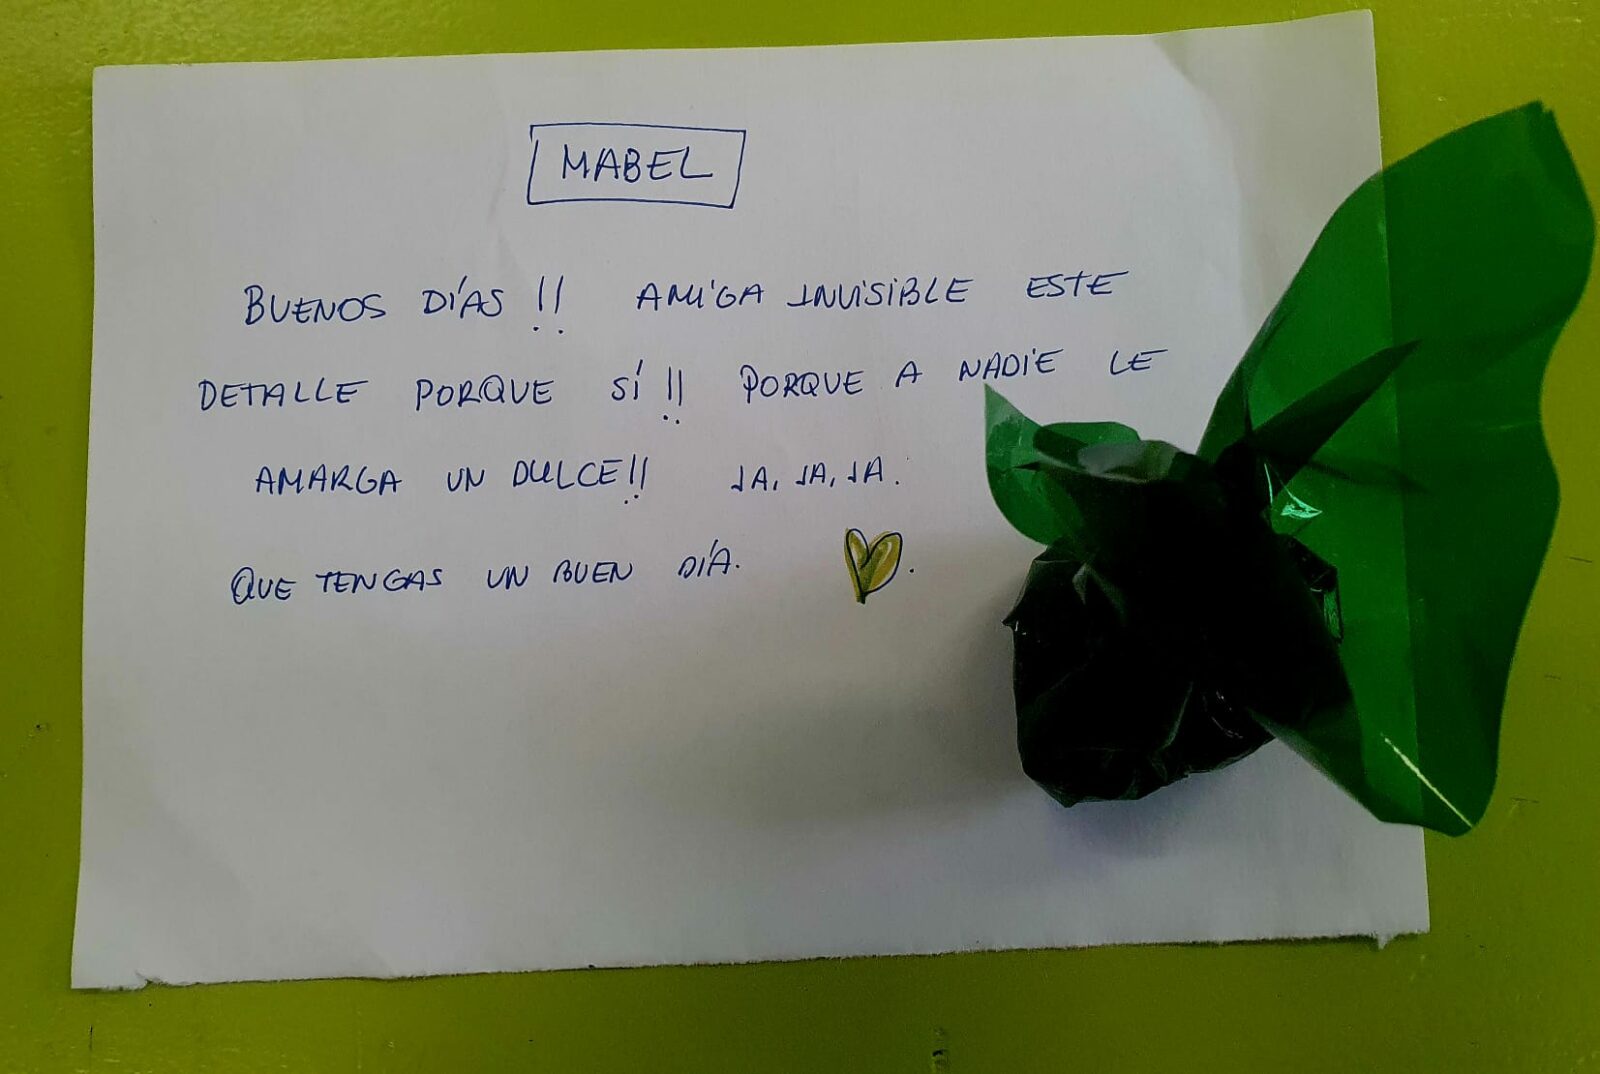 MABEL
BUENOS DÍAS!! AMIGA INVISIBLE ESTE
DETALLE PORQUE SÍ!! PORQUE A NADIE LE
AMARGA UN DULCE!! JA, JA, JA.
QUE TENGAS UN BUEN DÍA.